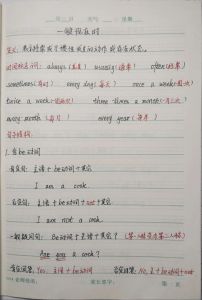 一般现在时
定义：表示经常或习惯性发生的动作或存在状态。
时间标志词：always (总是) usually (通常) often (经常)
sometimes (有时) every day (每天) once a week (一周一次)
twice a week (一周两次) three times a month (一月三次)
every month (每月) every year (每年)
句子结构：
1. 含be动词
肯定句：主语 + be动词 + 其它
I am a cook.
否定句：主语 + be动词 + not + 其它
I am not a cook.
一般疑问句：Be动词 + 主语 + 其它？
Are you a cook?
肯定回答：Yes, 主语 + be动词 否定回答：No, 主 + be动词 + not